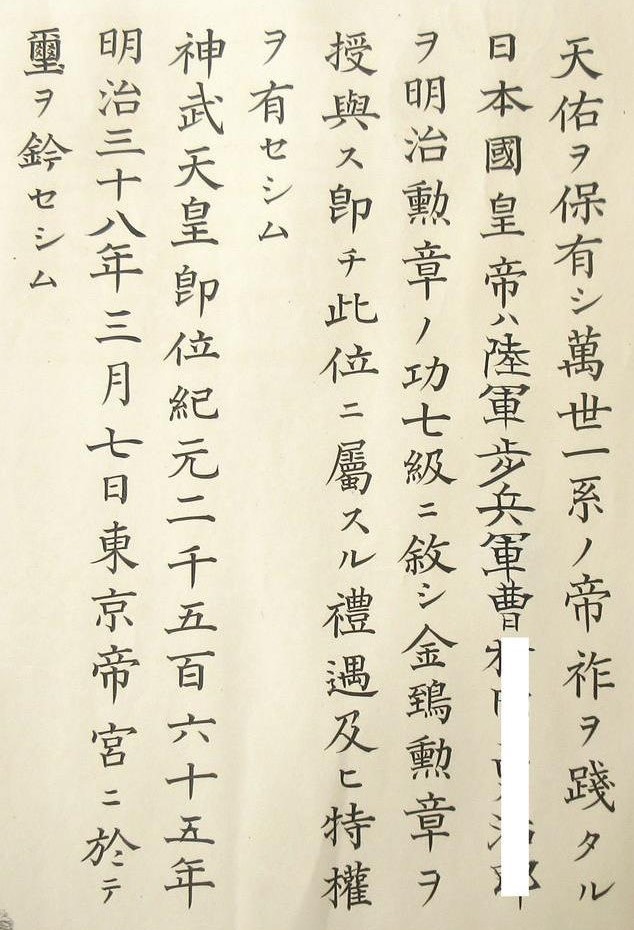 天佑ヲ保有シ萬世一系ノ帝祚ヲ踐タル
日本國皇帝ハ陸軍步兵軍曹
ヲ明治勲章ノ功七級ニ敘シ金鵄勲章ヲ
授與ス卽チ此位ニ屬スル禮遇及ヒ特權
ヲ有セシム
神武天皇卽位紀元二千五百六十五年
明治三十八年三月七日東京帝宮ニ於テ
璽ヲ鈐セシム